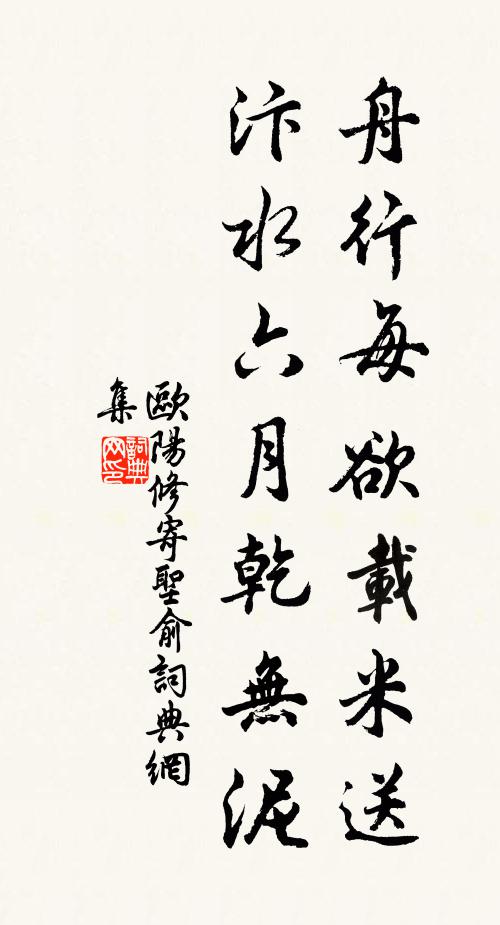 舟行每欲載米送
汴水六月乾無泥
歐陽修寄聖俞詞典網
集
詞典
网印